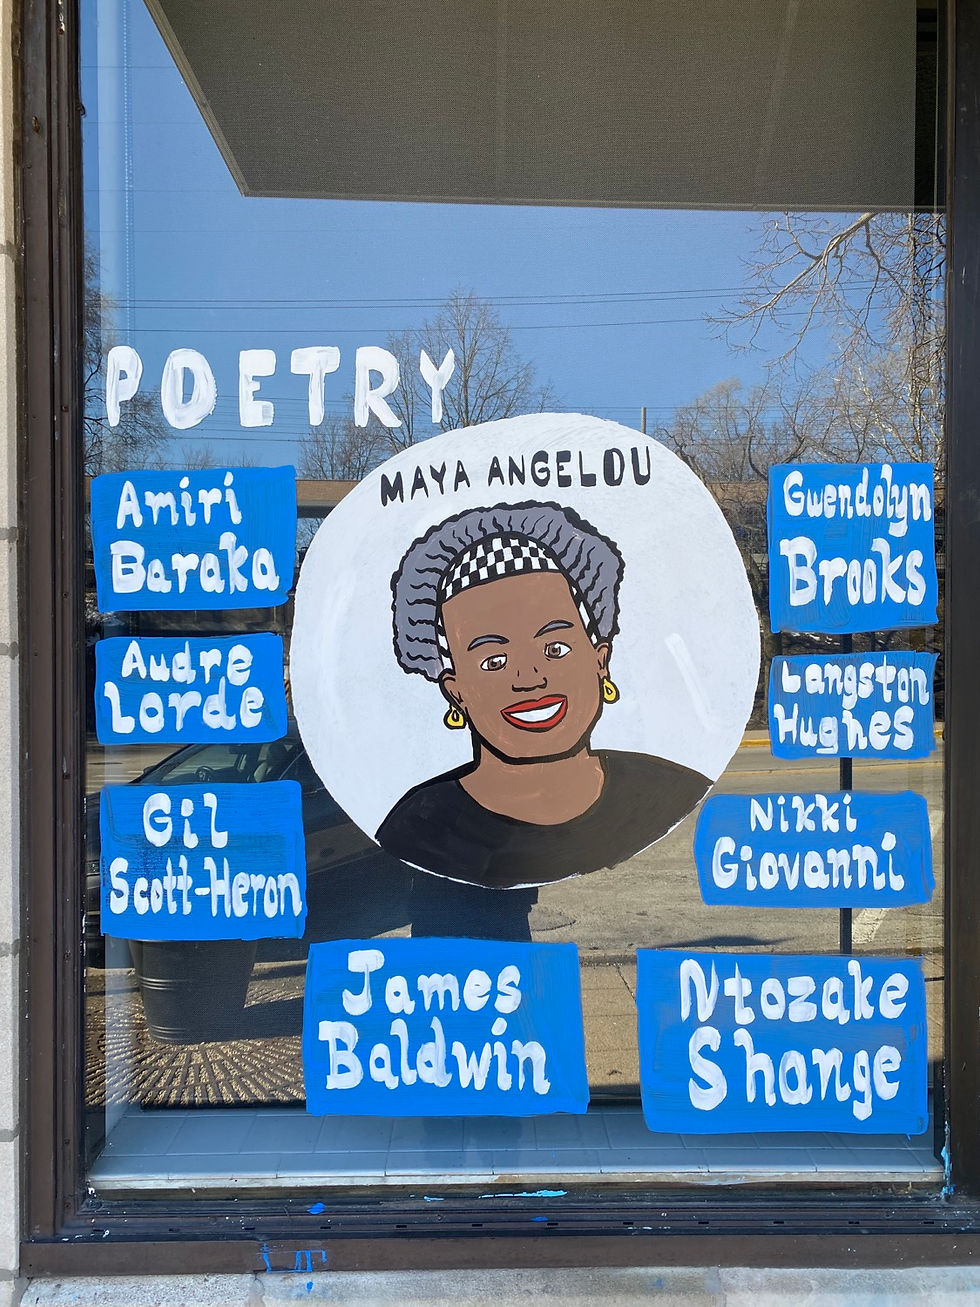 POETRY
MAYA ANGELOU
Amiri
Baraka
Audre
Lorde
Gil
Scott-Heron
Gwendolyn
Brooks
Langston
Hughes
Nikki
Giovanni
James
Baldwin
Ntozake
Shange